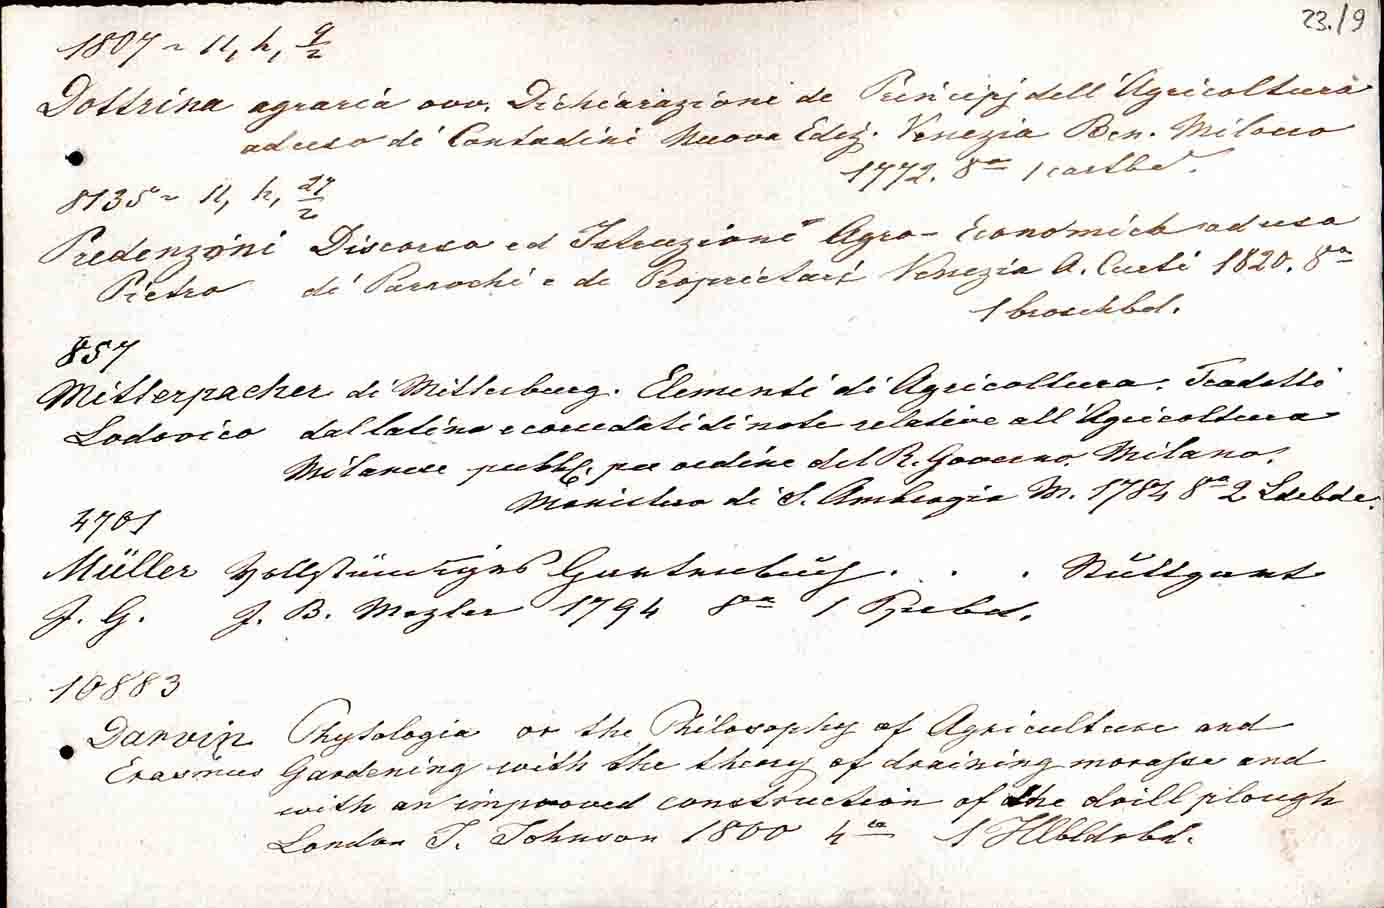 23./9
1807 ~ II, h, 9/2
Dottrina agraria ovv. Dichiarazioni de Principj dell'Agricoltura
ad uso di Contadini Nuova Ediz. Venezia Ben. Milocco
1772. 8vo 1 cartbd.
8135 ~ II, h, 27/2
Predenzoni Discorso ed Istruzioni Agro-Economich ad uso
Pietro di Parrochi e di Proprietari Venezia A. Curti 1820. 8vo
1 broschbd.
857
Mitterpacher di Mitterburg. Elementi di Agricoltura. Tradotti
Lodovico dal latino e corredati di note relative all'Agricoltura
Milanese pubbl. per ordine del R. Governo. Milano.
Monistero di S. Ambrogio M. 1784 8vo 2 Ldrbde.
4701
Müller Vollständiges Gartenbuch . . . Stuttgart
J. G. J. B. Mezler 1794 8vo 1 Ppebd.
10883
Darwin Phytologia or the Philosophy of Agriculture and
Erasmus Gardening with the theory of draining morasse and
with an improoved construction of the drill plough
London J. Johnson 1800 4to 1 Hlbldrbd.